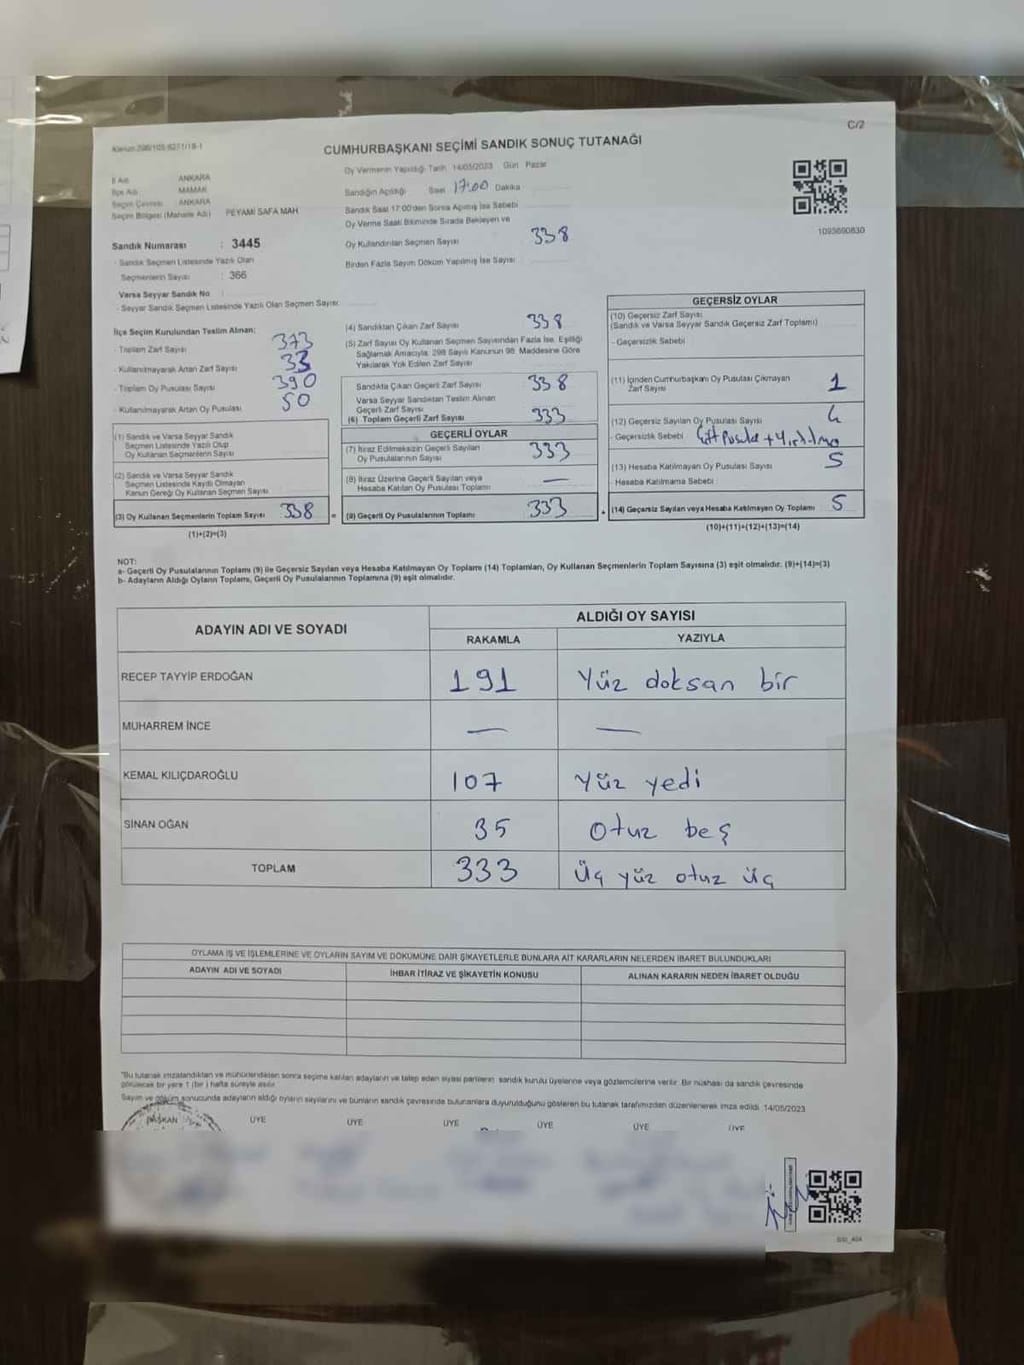 C/2
CUMHURBAŞKANI SEÇİMİ SANDIK SONUÇ TUTANAĞI
İl Adı ANKARA
İlçe Adı MAMAK
Seçim Çevresi ANKARA
Seçim Bölgesi (Mahalle Adı) PEYAMİ SAFA MAH
Sandık Numarası : 3445
- Sandık Seçmen Listesinde Yazılı Olan
Seçmenlerin Sayısı : 366
Varsa Seyyar Sandık No
- Seyyar Sandık Seçmen Listesinde Yazılı Olan Seçmen Sayısı
Oy Vermenin Yapıldığı Tarih 14/05/2023 Gün Pazar
Sandığın Açıldığı Saat 17:00 Dakika
Sandık Saat 17:00'den Sonra Açılmış İse Sebebi
Oy Verme Saati Bitiminde Sırada Bekleyen ve
Oy Kullandırılan Seçmen Sayısı 338
Birden Fazla Sayım Döküm Yapılmış İse Sayısı
1093690830
İlçe Seçim Kurulundan Teslim Alınan;
- Toplam Zarf Sayısı 373
- Kullanılmayarak Artan Zarf Sayısı 33
- Toplam Oy Pusulası Sayısı 390
- Kullanılmayarak Artan Oy Pusulası 50
(1) Sandık ve Varsa Seyyar Sandık
Seçmen Listesinde Yazılı Olup
Oy Kullanan Seçmenlerin Sayısı
(2) Sandık ve Varsa Seyyar Sandık
Seçmen Listesinde Kaydı Olmayan
Kanun Gereği Oy Kullanan Seçmen Sayısı
(3) Oy Kullanan Seçmenlerin Toplam Sayısı 338
(1)+(2)=(3)
(4) Sandıktan Çıkan Zarf Sayısı 338
(5) Zarf Sayısı Oy Kullanan Seçmen Sayısından Fazla İse, Eşitliği
Sağlamak Amacıyla; 298 Sayılı Kanunun 98. Maddesine Göre
Yakılarak Yok Edilen Zarf Sayısı
Sandıkta Çıkan Geçerli Zarf Sayısı 338
Varsa Seyyar Sandıktan Teslim Alınan
Geçerli Zarf Sayısı
(6) Toplam Geçerli Zarf Sayısı 333
GEÇERLİ OYLAR
(7) İtiraz Edilmeksizin Geçerli Sayılan
Oy Pusulalarının Sayısı 333
(8) İtiraz Üzerine Geçerli Sayılan veya
Hesaba Katılan Oy Pusulası Toplamı —
= (9) Geçerli Oy Pusulalarının Toplamı 333
GEÇERSİZ OYLAR
(10) Geçersiz Zarf Sayısı
(Sandık ve Varsa Seyyar Sandık Geçersiz Zarf Toplamı)
- Geçersizlik Sebebi
(11) İçinden Cumhurbaşkanı Oy Pusulası Çıkmayan
Zarf Sayısı 1
(12) Geçersiz Sayılan Oy Pusulası Sayısı 4
- Geçersizlik Sebebi Çift Pusula + Yırtılma
(13) Hesaba Katılmayan Oy Pusulası Sayısı 5
Hesaba Katılmama Sebebi
+ (14) Geçersiz Sayılan veya Hesaba Katılmayan Oy Toplamı 5
(10)+(11)+(12)+(13)=(14)
NOT:
a- Geçerli Oy Pusulalarının Toplamı (9) ile Geçersiz Sayılan veya Hesaba Katılmayan Oy Toplamı (14) Toplamları, Oy Kullanan Seçmenlerin Toplam Sayısına (3) eşit olmalıdır. (9)+(14)=(3)
b- Adayların Aldığı Oyların Toplamı, Geçerli Oy Pusulalarının Toplamına (9) eşit olmalıdır.
ADAYIN ADI VE SOYADI
ALDIĞI OY SAYISI
RAKAMLA YAZIYLA
RECEP TAYYİP ERDOĞAN 191 Yüz doksan bir
MUHARREM İNCE — —
KEMAL KILIÇDAROĞLU 107 Yüz yedi
SİNAN OĞAN 35 Otuz beş
TOPLAM 333 Üç yüz otuz üç
OYLAMA İŞ VE İŞLEMLERİNE VE OYLARIN SAYIM VE DÖKÜMÜNE DAİR ŞİKAYETLERLE BUNLARA AİT KARARLARIN NELERDEN İBARET BULUNDUKLARI
ADAYIN ADI VE SOYADI İHBAR İTİRAZ VE ŞİKAYETİN KONUSU ALINAN KARARIN NEDEN İBARET OLDUĞU
"Bu tutanak imzalandıktan ve mühürlendikten sonra seçime katılan adayların ve talep eden siyasi partilerin sandık kurulu üyelerine veya gözlemcilerine verilir. Bir nüshası da sandık çevresinde
görülecek bir yere 1 (bir) hafta süreyle asılır.
Sayım ve döküm sonucunda adayların aldığı oyların sayılarını ve bunların sandık çevresinde bulunanlara duyurulduğunu gösteren bu tutanak tarafımızdan düzenlenerek imza edildi. 14/05/2023
BAŞKAN ÜYE ÜYE ÜYE ÜYE ÜYE ÜYE